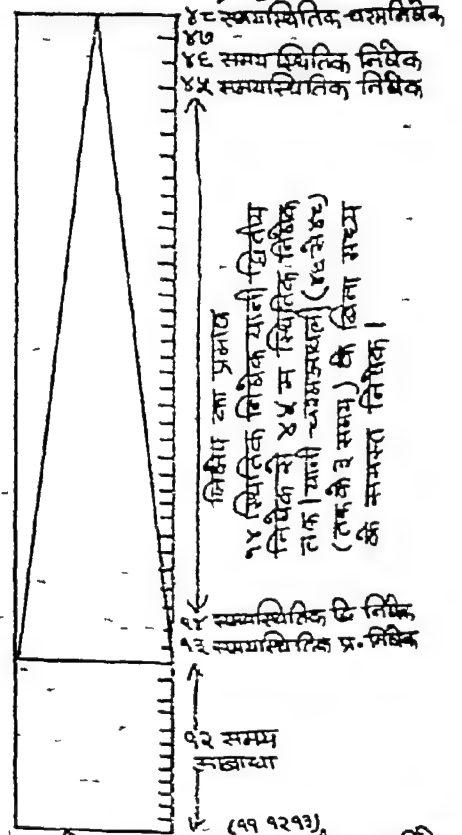 ४८ समयस्थितिक चरमनिषेक
४७
४६ समय स्थितिक निषेक
४५ समयस्थितिक निषेक
निक्षेप का प्रमाण
१४ स्थितिक निषेक यानी द्वितीय
निषेक से ४५ म स्थितिक निषेक
तक। यानी चरमआवली (४६ से ४८)
(तक के ३ समय) के बिना मध्य
के समस्त निषेक।
१४ समयस्थितिक द्वि निषेक
१३ समयस्थितिक प्र. निषेक
१२ समय
अबाधा
(११ १२ १३)